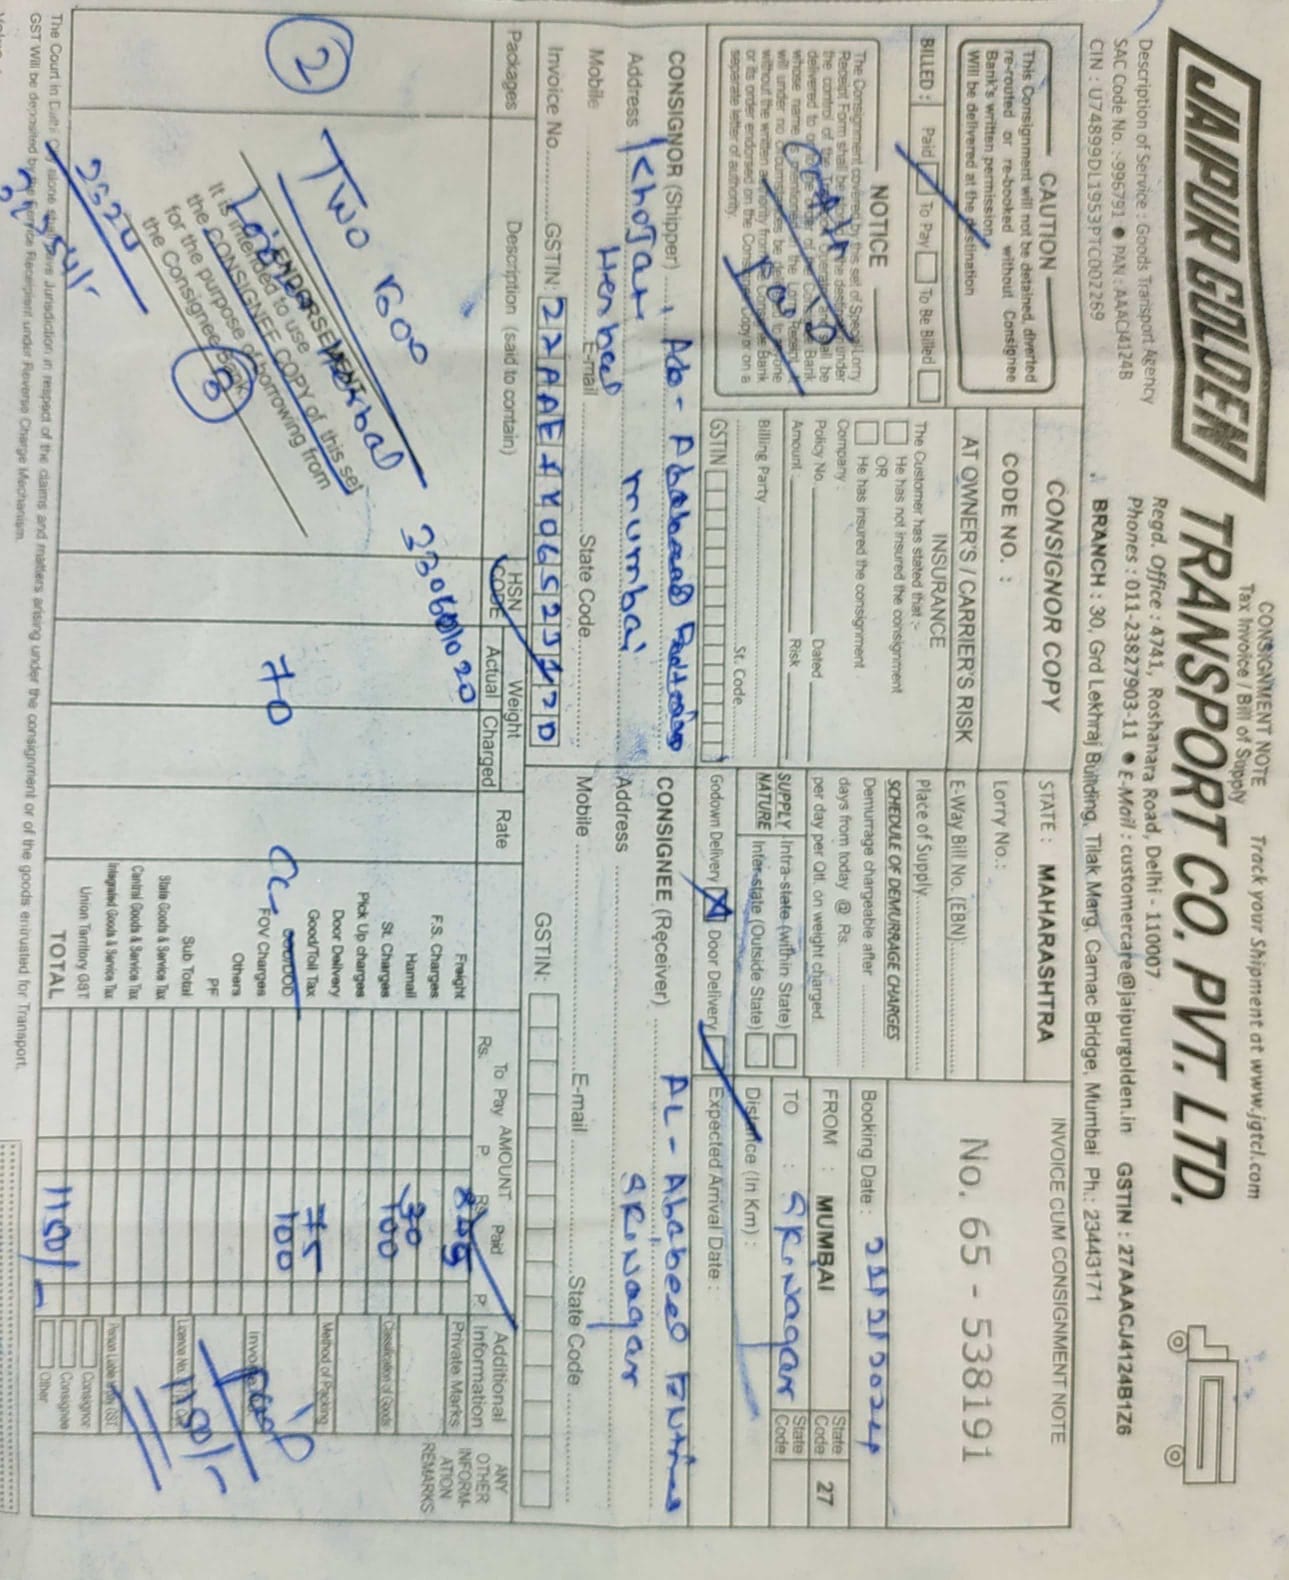 CONSIGNMENT NOTE
Tax Invoice / Bill of Supply
Track your Shipment at www.jgtcl.com
JAIPUR GOLDEN TRANSPORT CO. PVT. LTD.
Regd. Office : 4741, Roshanara Road, Delhi - 110007
Phones : 011-23827903-11 ● E-Mail : customercare@jaipurgolden.in GSTIN : 27AAACJ4124B1Z6
Description of Service : Goods Transport Agency
SAC Code No. :-996791 ● PAN : AAACJ4124B
CIN : U74899DL1953PTC002269
BRANCH : 30, Grd Lekhraj Building, Tilak Marg, Carnac Bridge, Mumbai Ph.: 23443171
CAUTION
This Consignment will not be detained, diverted
re-routed or re-booked without Consignee
Bank's written permission
Will be delivered at the destination
BILLED : Paid To Pay To Be Billed
NOTICE
The Consignment covered by this set of Special Lorry
Receipt Form shall be
separate letter of authority.
CONSIGNOR COPY
CODE NO. :
AT OWNER'S / CARRIER'S RISK
INSURANCE
The Customer has stated that :-
He has not insured the consignment
OR
He has insured the consignment
Company :
Policy No. Dated
Amount Risk
Billing Party
St. Code
GSTIN
STATE : MAHARASHTRA
Lorry No.:
E-Way Bill No. (EBN)
Place of Supply
SCHEDULE OF DEMURRAGE CHARGES
Demurrage chargeable after
days from today @ Rs.
per day per Qtl. on weight charged.
SUPPLY NATURE
Intra-state (within State)
Inter-state (Outside State)
Godown Delivery Door Delivery
INVOICE CUM CONSIGNMENT NOTE
No. 65 - 538191
Booking Date :
FROM : MUMBAI State Code 27
TO : SRINagar State Code
Distance (In Km) :
Expected Arrival Date :
CONSIGNOR (Shipper)
Address Khojati Herbal mumbai
Mobile E-mail State Code
Invoice No. GSTIN:
CONSIGNEE (Receiver) AL - Ababeel
Address SRINagar
Mobile E-mail State Code
GSTIN:
Packages Description (said to contain) HSN CODE Weight Actual Charged Rate
AMOUNT To Pay Rs. P. Paid Rs. P.
Additional Information
ANY OTHER INFORM-ATION REMARKS
2
TWO
33061020
70
ENDORSEMENT
It is intended to use
the CONSIGNEE COPY of this set
for the purpose of borrowing from
the Consignee Bank
Herbal
2520
Freight
F.S. Charges
Hamali 30
St. Charges 100
Pick Up charges
Door Delivery
Good/Toll Tax 75
COD/DOD 100
FOV Charges
Others
PF
Sub Total
State Goods & Service Tax
Central Goods & Service Tax
Integrated Goods & Service Tax
Union Territory GST
TOTAL 1150/-
Private Marks
Classification of Goods
Method of Packing
Consignor
Consignee
Other
Paid
1150/-
The Court in Delhi City alone shall have Jurisdiction in respect of the claims and matters arising under the consignment or of the goods entrusted for Transport.
GST Will be deposited by the Service Recipient under Reverse Charge Mechanism.